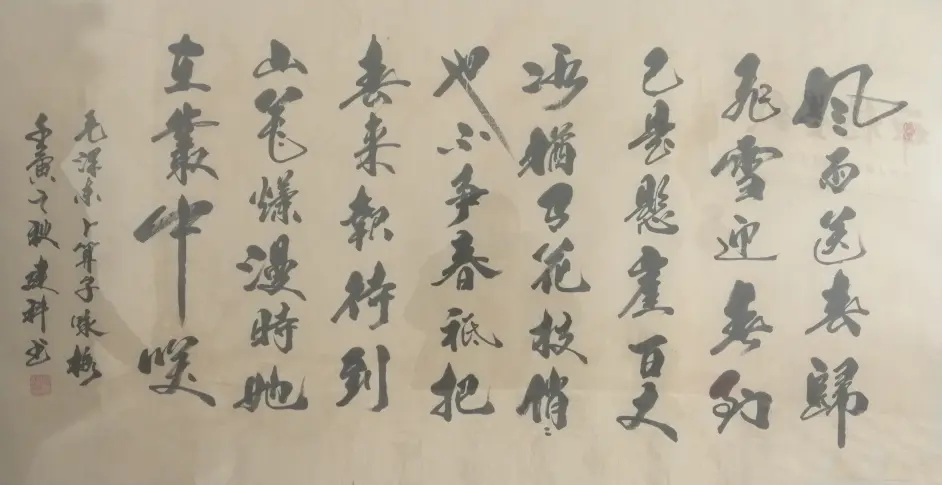 風雨送春歸
飛雪迎春到
已是懸崖百丈
冰猶有花枝俏〻
也不争春祗把
春来報待到
山花爛漫時她
在叢中咲
毛澤东卜算子咏梅
壬寅之秋建科书